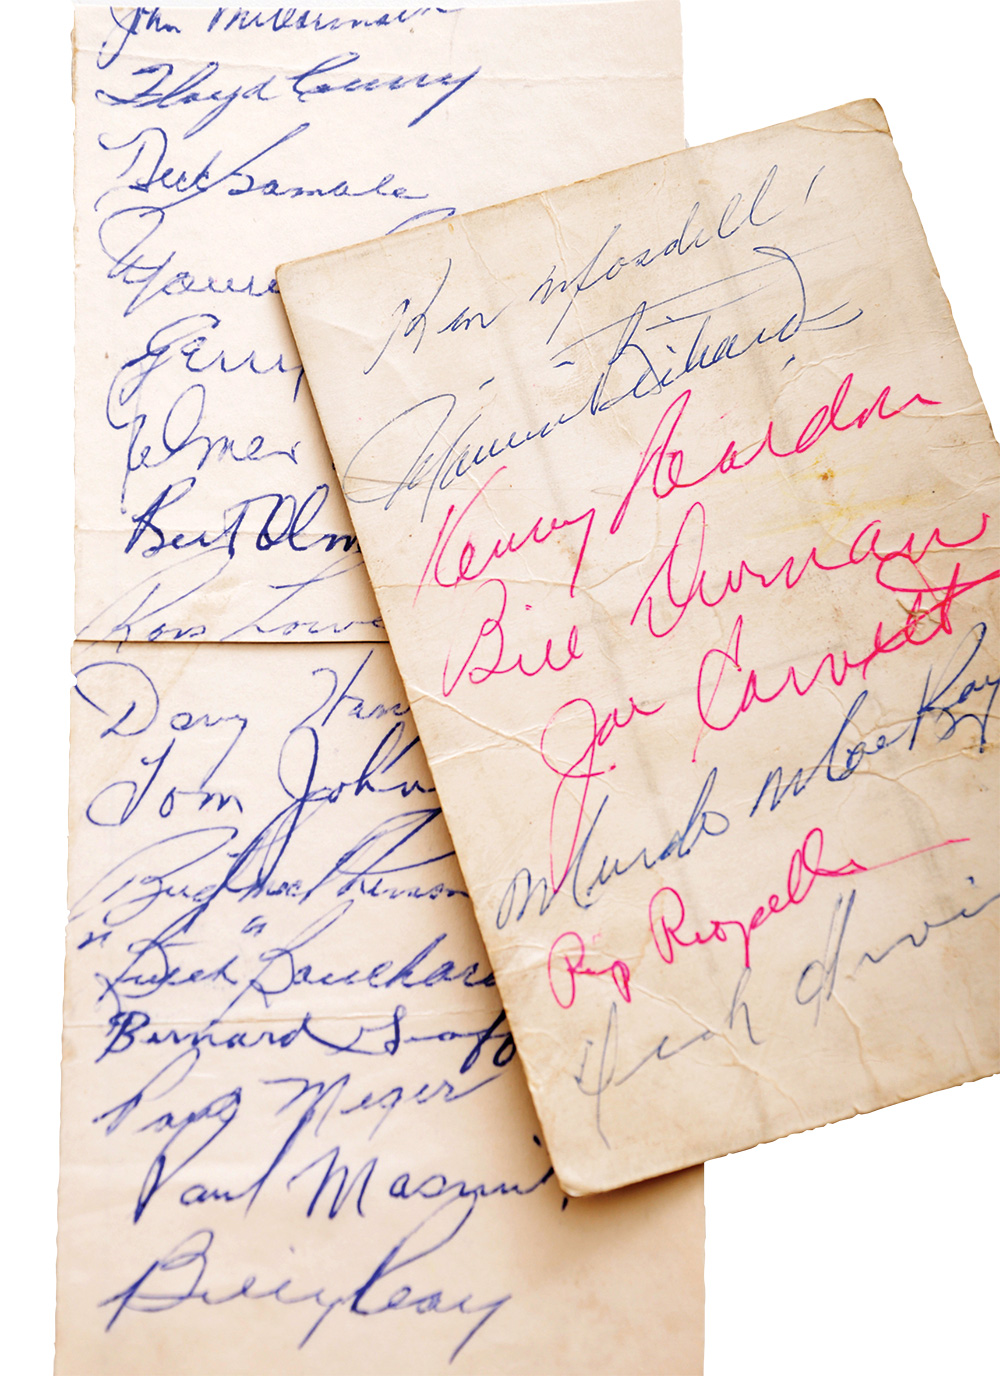 John McCormack
Floyd Curry
Dick Gamble
Maurice
Gerry
Elmer
Bert Olm
Ross Lowe
Dany
Tom John
Bud MacPherson
"Butch" Bouchard
Bernard Geoff
Paul Meger
Paul Masnick
Billy Reay
Ken Mosdell
Maurice Richard
Kenny Reardon
Bill Durnan
Joe Carveth
Murdo MacKay
Rip Riopelle
Dick Irvin